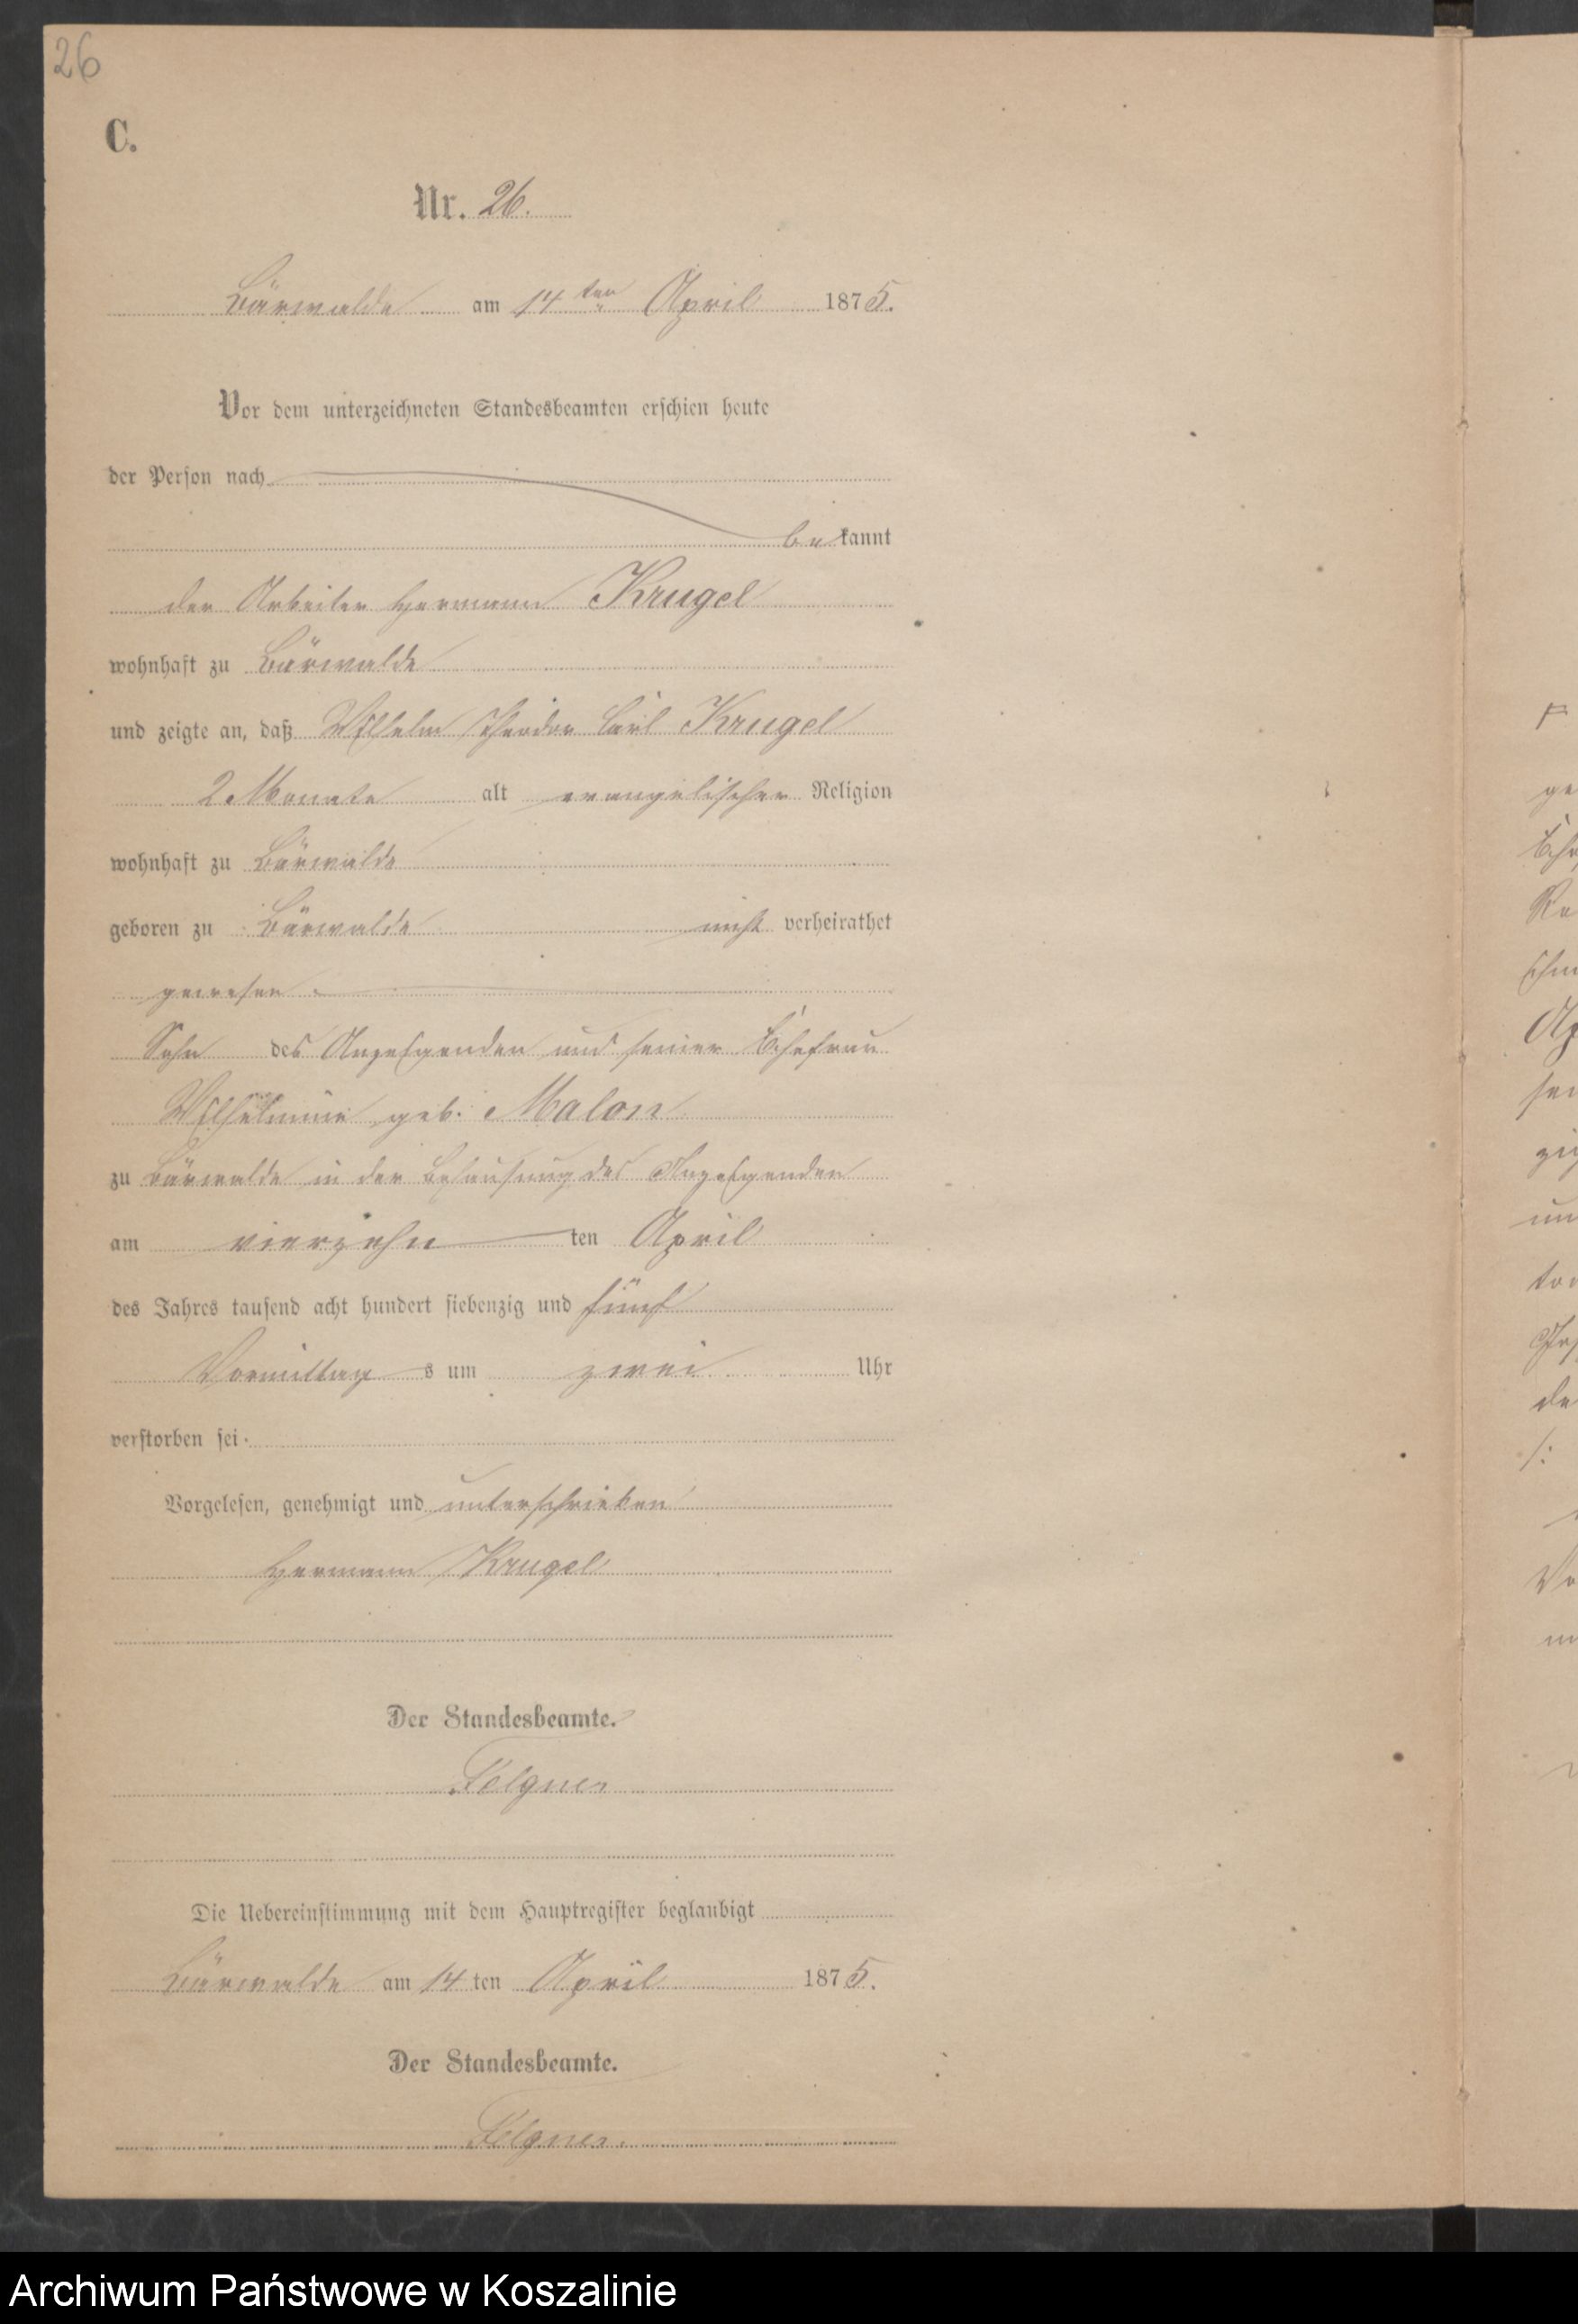 26
C.
Nr. 26.
Bärwalde am 14ten April 1875.
Vor dem unterzeichneten Standesbeamten erschien heute
der Person nach
bekannt
der Arbeiter Hermann Krugel
wohnhaft zu Bärwalde
und zeigte an, daß Wilhelm Theodor Carl Krugel
2 Monate alt evangelischer Religion
wohnhaft zu Bärwalde
geboren zu Bärwalde nicht verheirathet
gewesen.
Sohn des Anzeigenden und seiner Ehefrau
Wilhelmine geb. Malon
zu Bärwalde in der Behausung des Anzeigenden
am vierzehn ten April
des Jahres tausend acht hundert siebenzig und fünf
Vormittags um zwei Uhr
verstorben sei.
Vorgelesen, genehmigt und unterschrieben
Hermann Krugel
Der Standesbeamte.
Felgner
Die Uebereinstimmung mit dem Hauptregister beglaubigt
Bärwalde am 14 ten April 1875.
Der Standesbeamte.
Felgner.
Archiwum Państwowe w Koszalinie